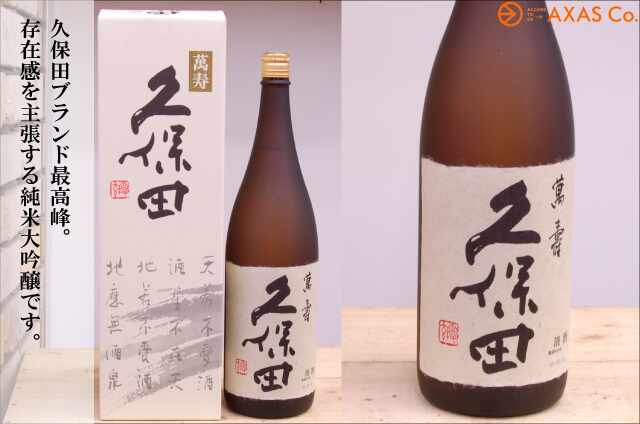 久保田ブランド最高峰。
存在感を主張する純米大吟醸です。
萬寿
久保田
天若不愛酒
酒星不在天
地若不愛酒
地應無酒泉
萬寿
久保田
清酒
AXAS Co.
萬寿
久保田
清酒